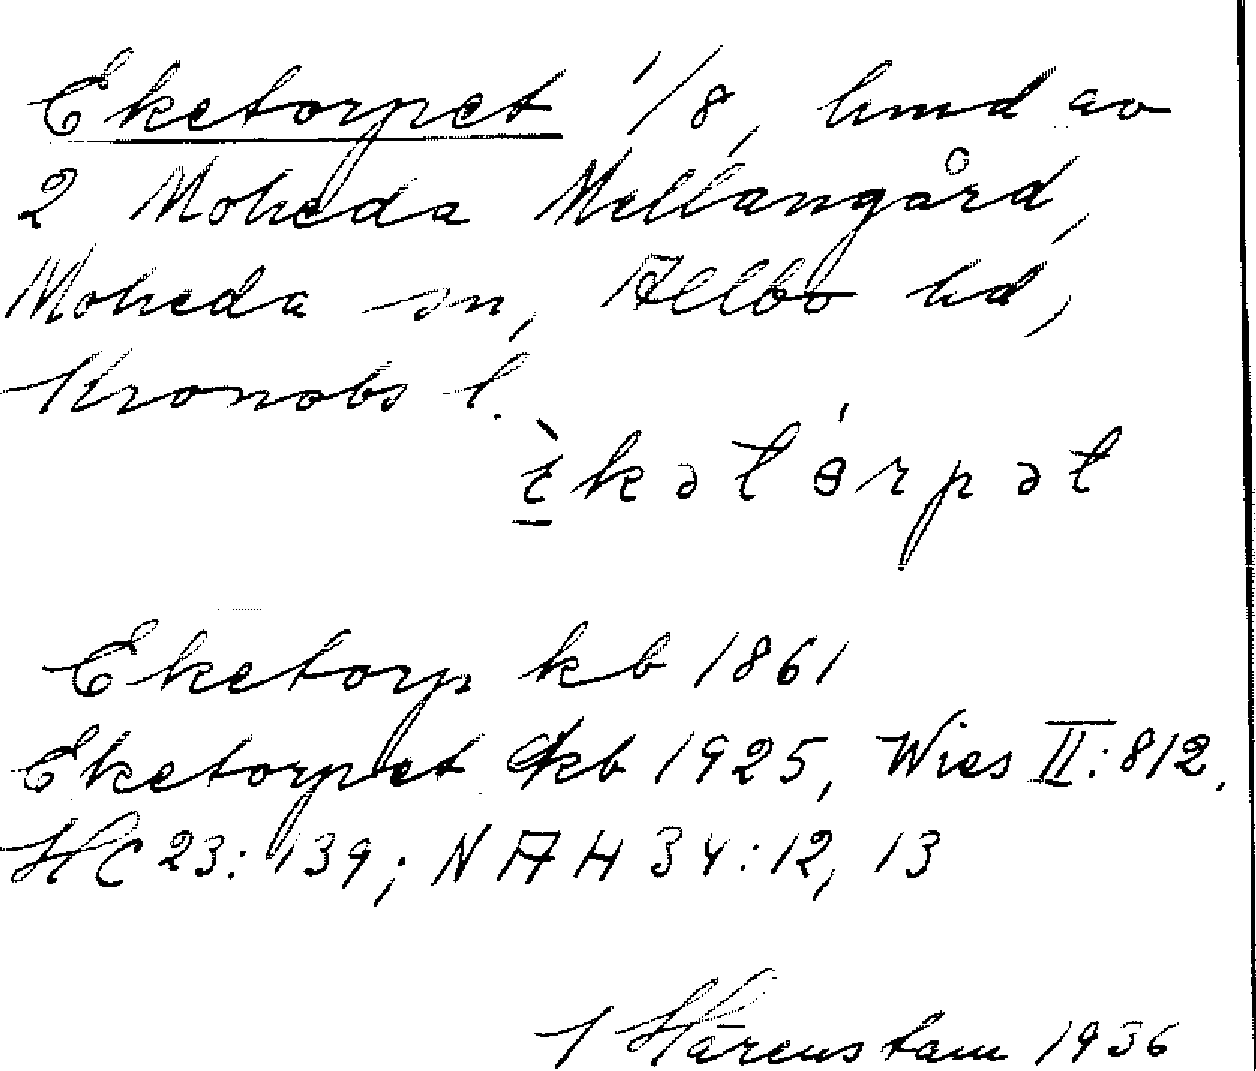 Eketorpet 1/8, hmd av
2 Moheda Mellangård,
Moheda sn, Allbo hd,
Kronobs l.
èkətórpət
Eketorp kb 1861
Eketorpet kb 1925, Wies II:812.
HC 23:139; NAH 34:12, 13
Härenstam 1936